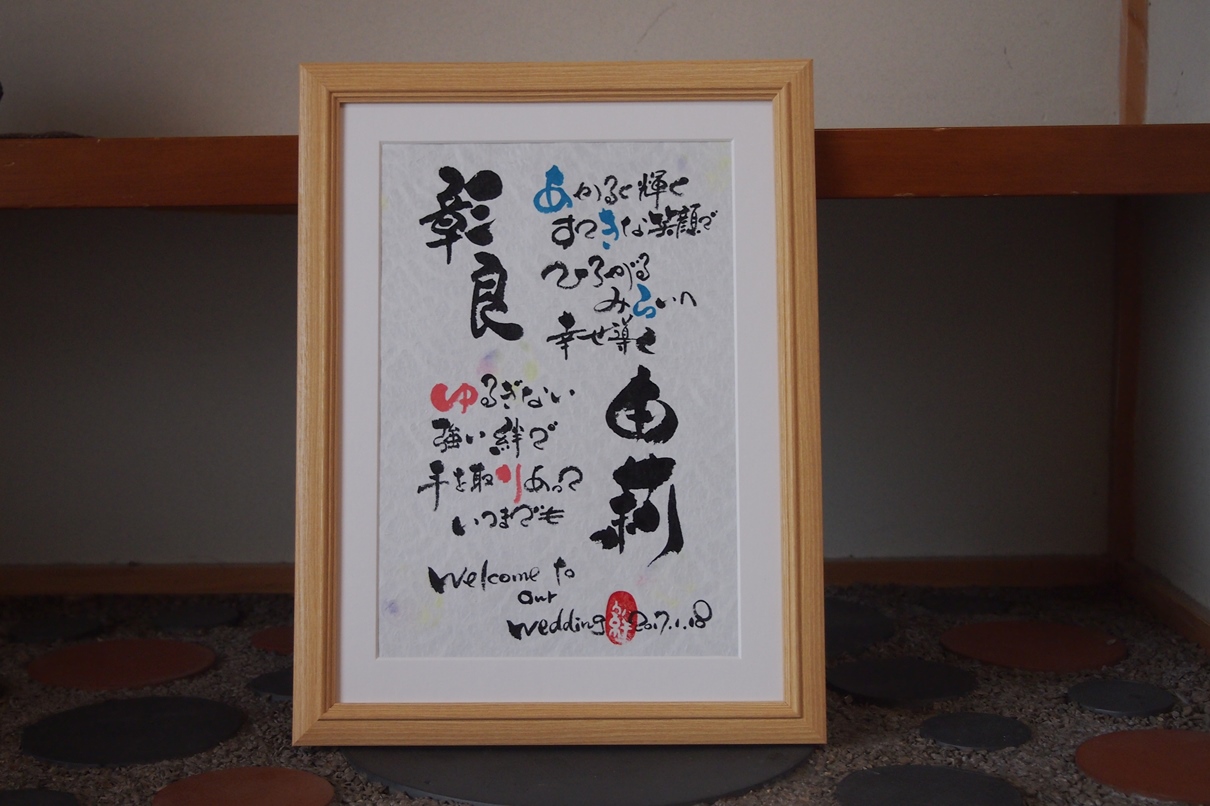 彰良
あかるく輝く
すてきな笑顔で
ひろがる
みらいへ
幸せ導く
由莉
ゆるぎない
強い絆で
手を取りあって
いつまでも
Welcome to
our
Wedding 2017.1.18